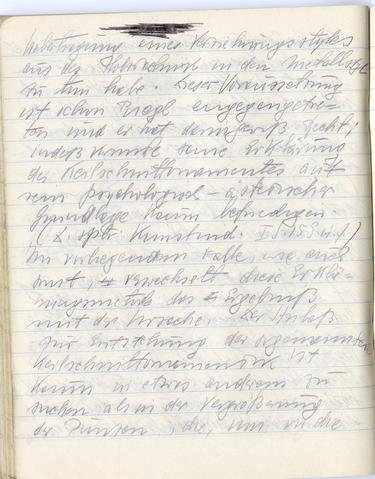 Uebertragung eines Verzierungsstyles
aus der Holztechnik in den Metallstyl
zu thun habe. Dieser Voraussetzung
ist schon Riegl entgegengetre-
ten und er hat demgemäß Recht;
indeß konnte seine Erklärung
des Keilschnittornamentes auf
rein psychologisch-
Grundlage kaum befriedigen.
(L. spätr. Kunstind.
Im vorliegenden Falle, wie auch
sonst, verwechselt diese Erklä-
rungsmethode das Ergebniß
mit der Ursache. Der Anlaß
zur Entstehung der
Keilschnittornamentik ist
kaum in etwas anderem zu
suchen als in der Vergrößerung
der Punzen, die, um in die